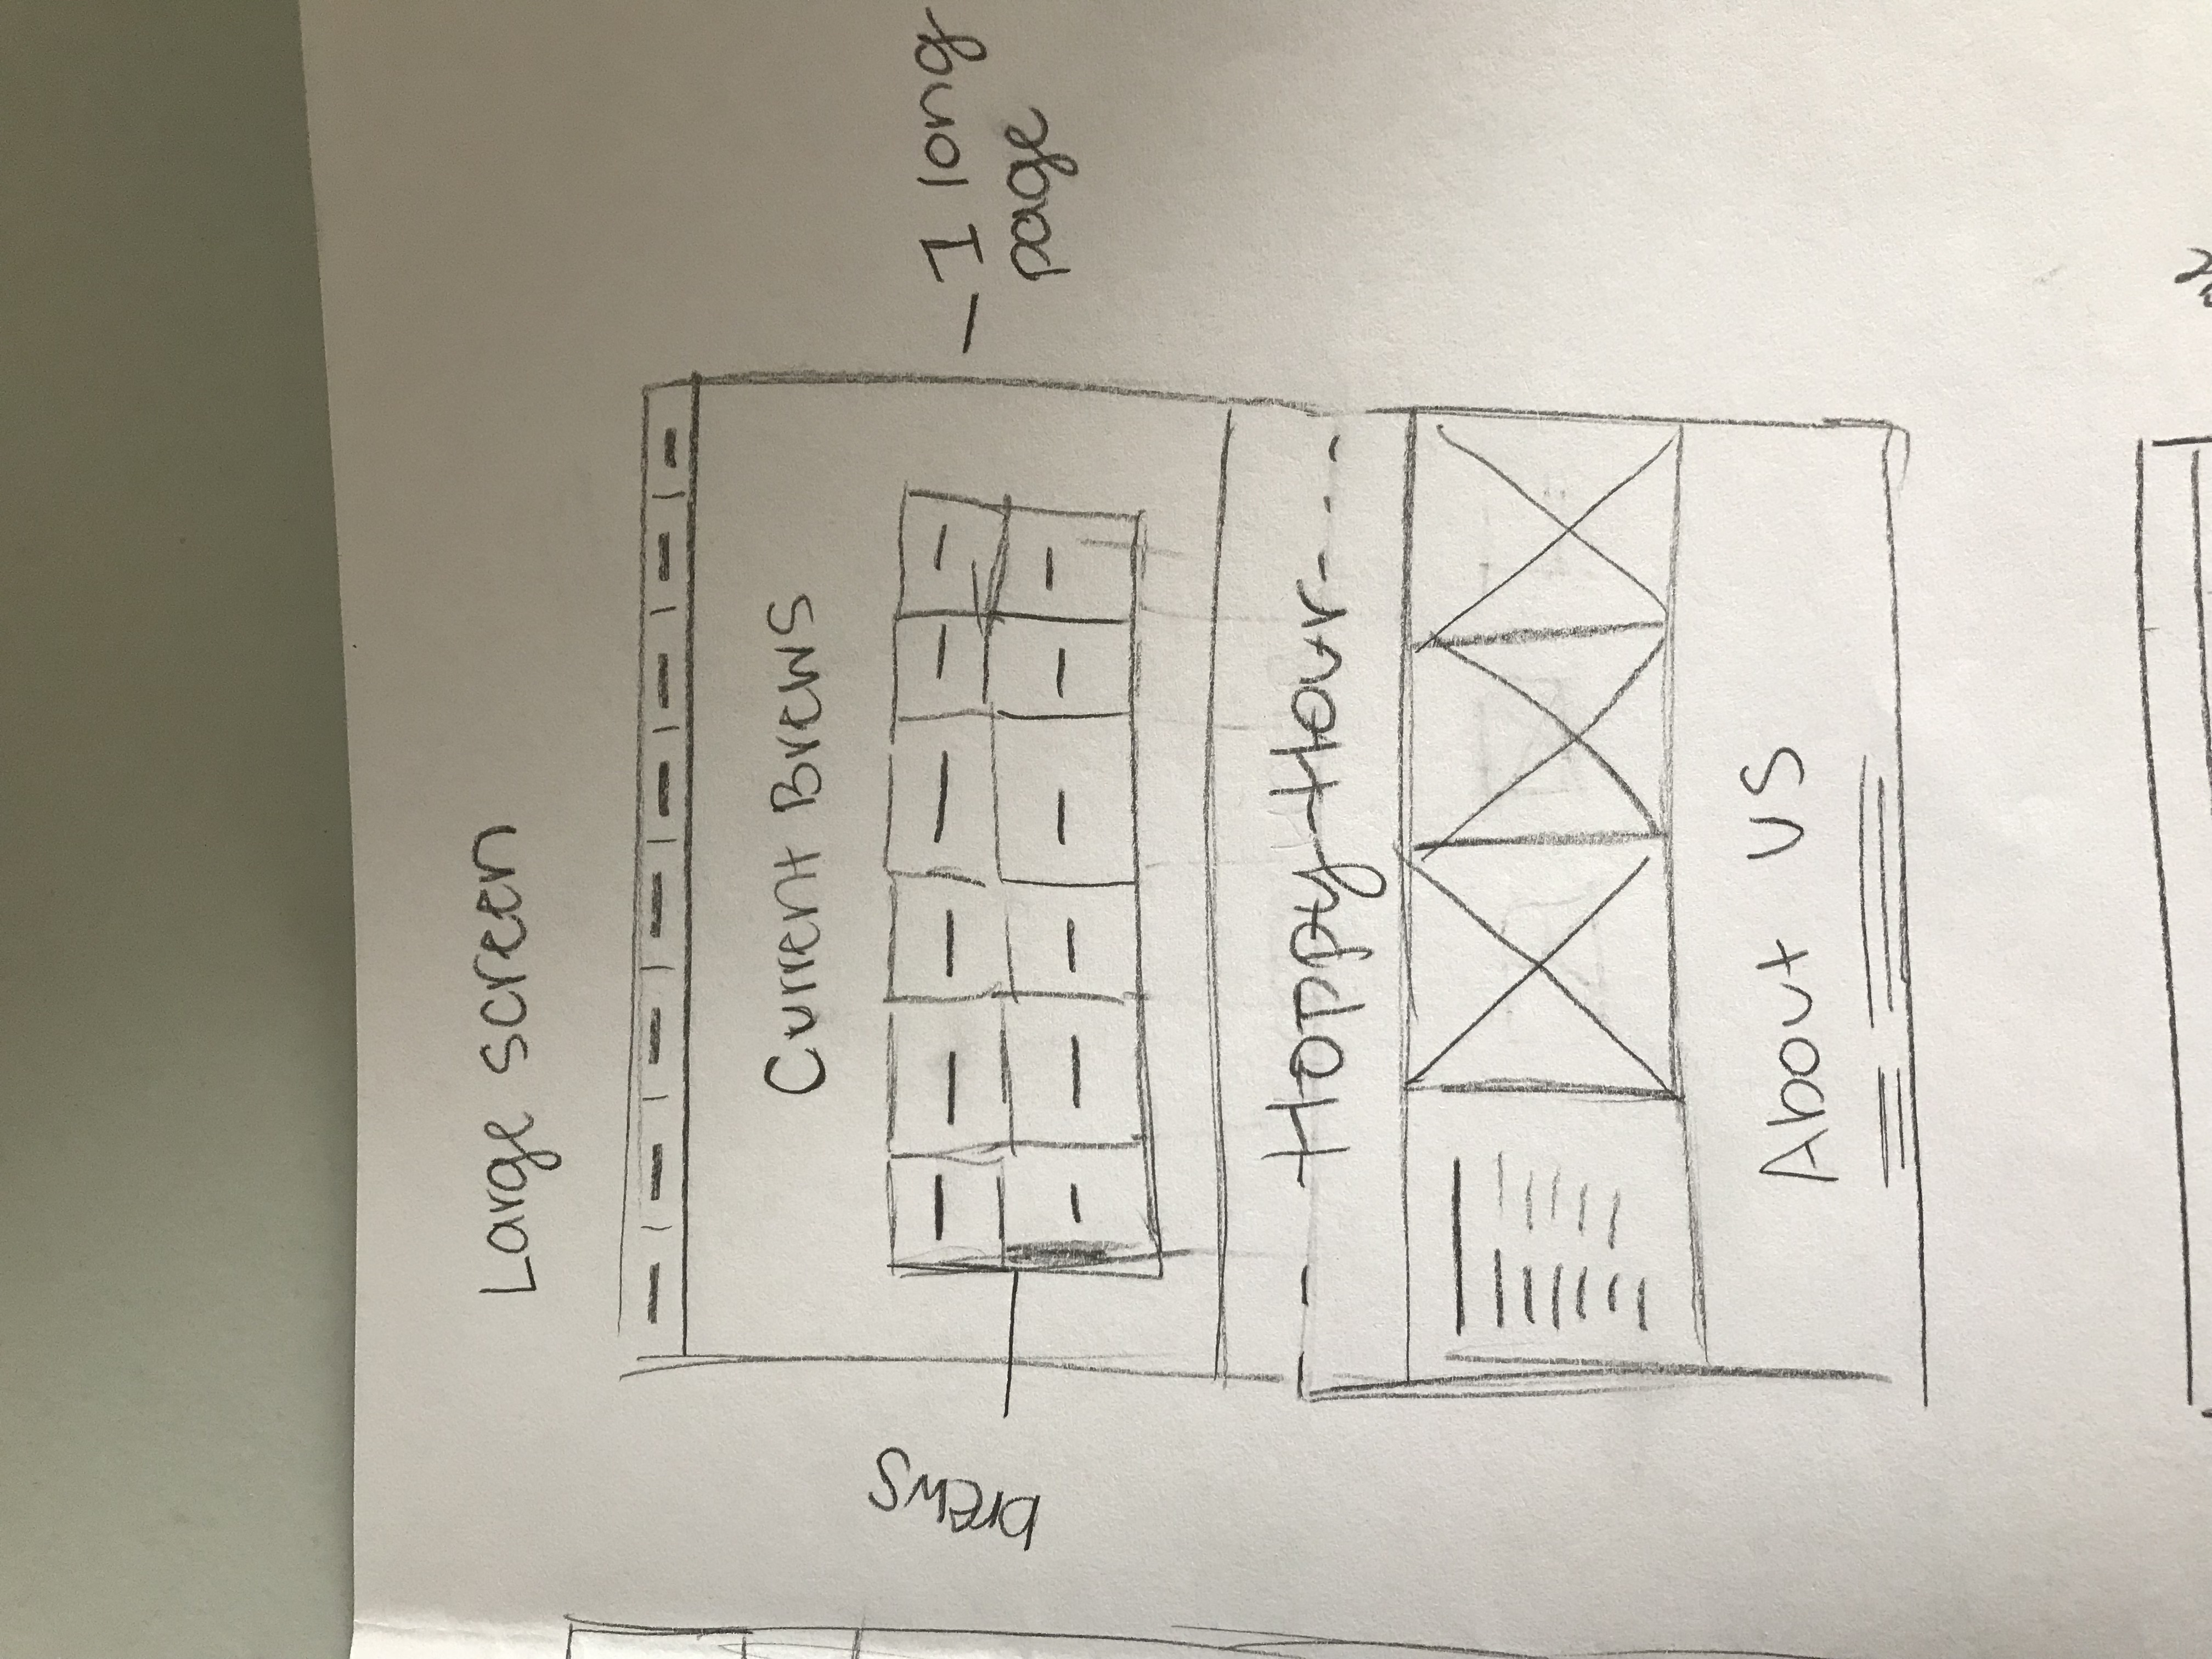 Large screen
Current Brews
brews
- 1 long
page
-- Hoppy Hour---
About US